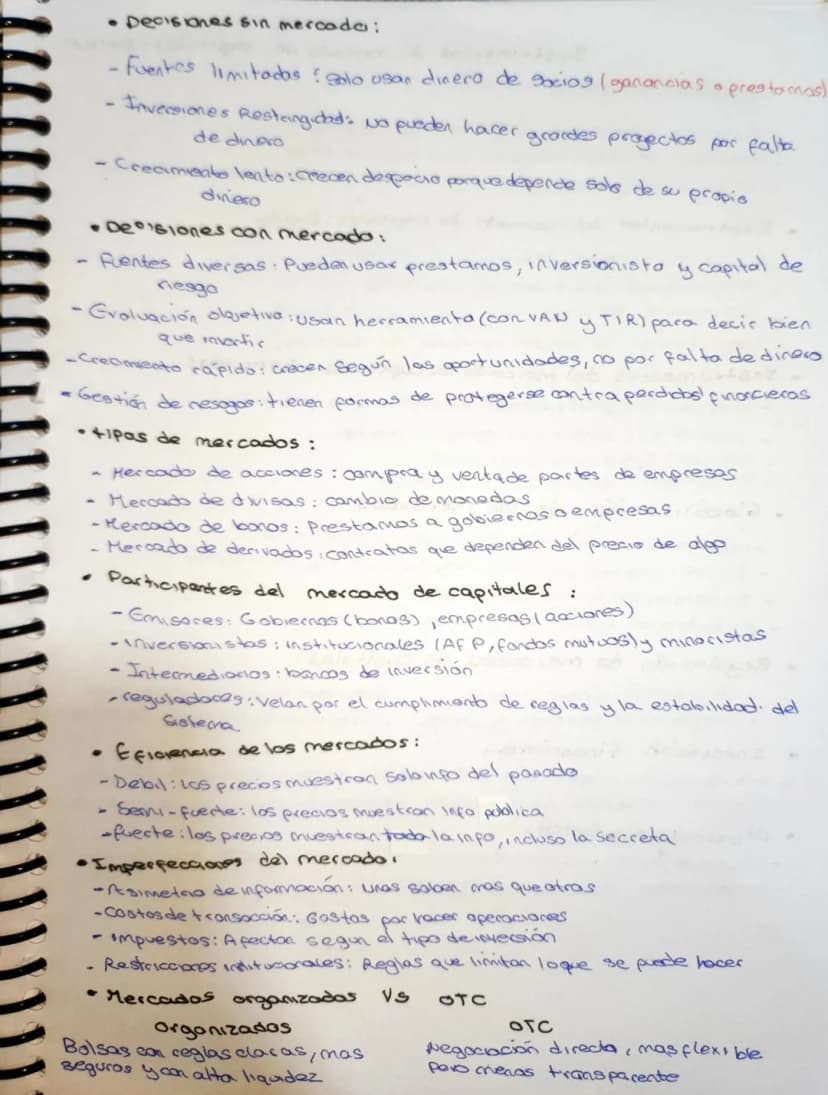 • Decisiones sin mercado:
- Fuentes limitadas: solo usan dinero de socios (ganancias o prestamos)
- Inversiones Restringidas: No pueden hacer grandes proyectos por falta
de dinero
- Crecimiento lento: crecen despacio porque depende solo de su propio
dinero
• Decisiones con mercado:
- Fuentes diversas: Pueden usar prestamos, inversionista y capital de
riesgo
- Evaluación objetiva: usan herramienta (con VAN y TIR) para decir bien
que invertir
- Crecimiento rápido: crecen según las oportunidades, no por falta de dinero
- Gestión de riesgos: tienen formas de protegerse contra perdidas financieras
• tipos de mercados:
- Mercado de acciones: compra y venta de partes de empresas
- Mercado de divisas: cambio de monedas
- Mercado de bonos: Prestamos a gobiernos o empresas
- Mercado de derivados: contratos que dependen del precio de algo
• Participantes del mercado de capitales:
- Emisores: Gobiernos (bonos), empresas (acciones)
- Inversionistas: institucionales (AFP, fondos mutuos) y minoristas
- Intermediarios: bancos de inversión
- reguladores: Velan por el cumplimiento de reglas y la estabilidad. del
sistema.
• Eficiencia de los mercados:
- Debil: los precios muestran solo info del pasado
- Semi-fuerte: los precios muestran info publica
- fuerte: los precios muestran toda la info, incluso la secreta
• Imperfecciones del mercado:
- Asimetria de información: Unos saben mas que otros
- Costos de transacción: Gastos por hacer operaciones
- Impuestos: Afectan segun el tipo de inversión
- Restricciones institucionales: Reglas que limitan lo que se puede hacer
• Mercados organizados VS OTC
Organizados OTC
Bolsas con reglas claras, mas Negociación directa, mas flexible
seguros y con alta liquidez pero menos transparente